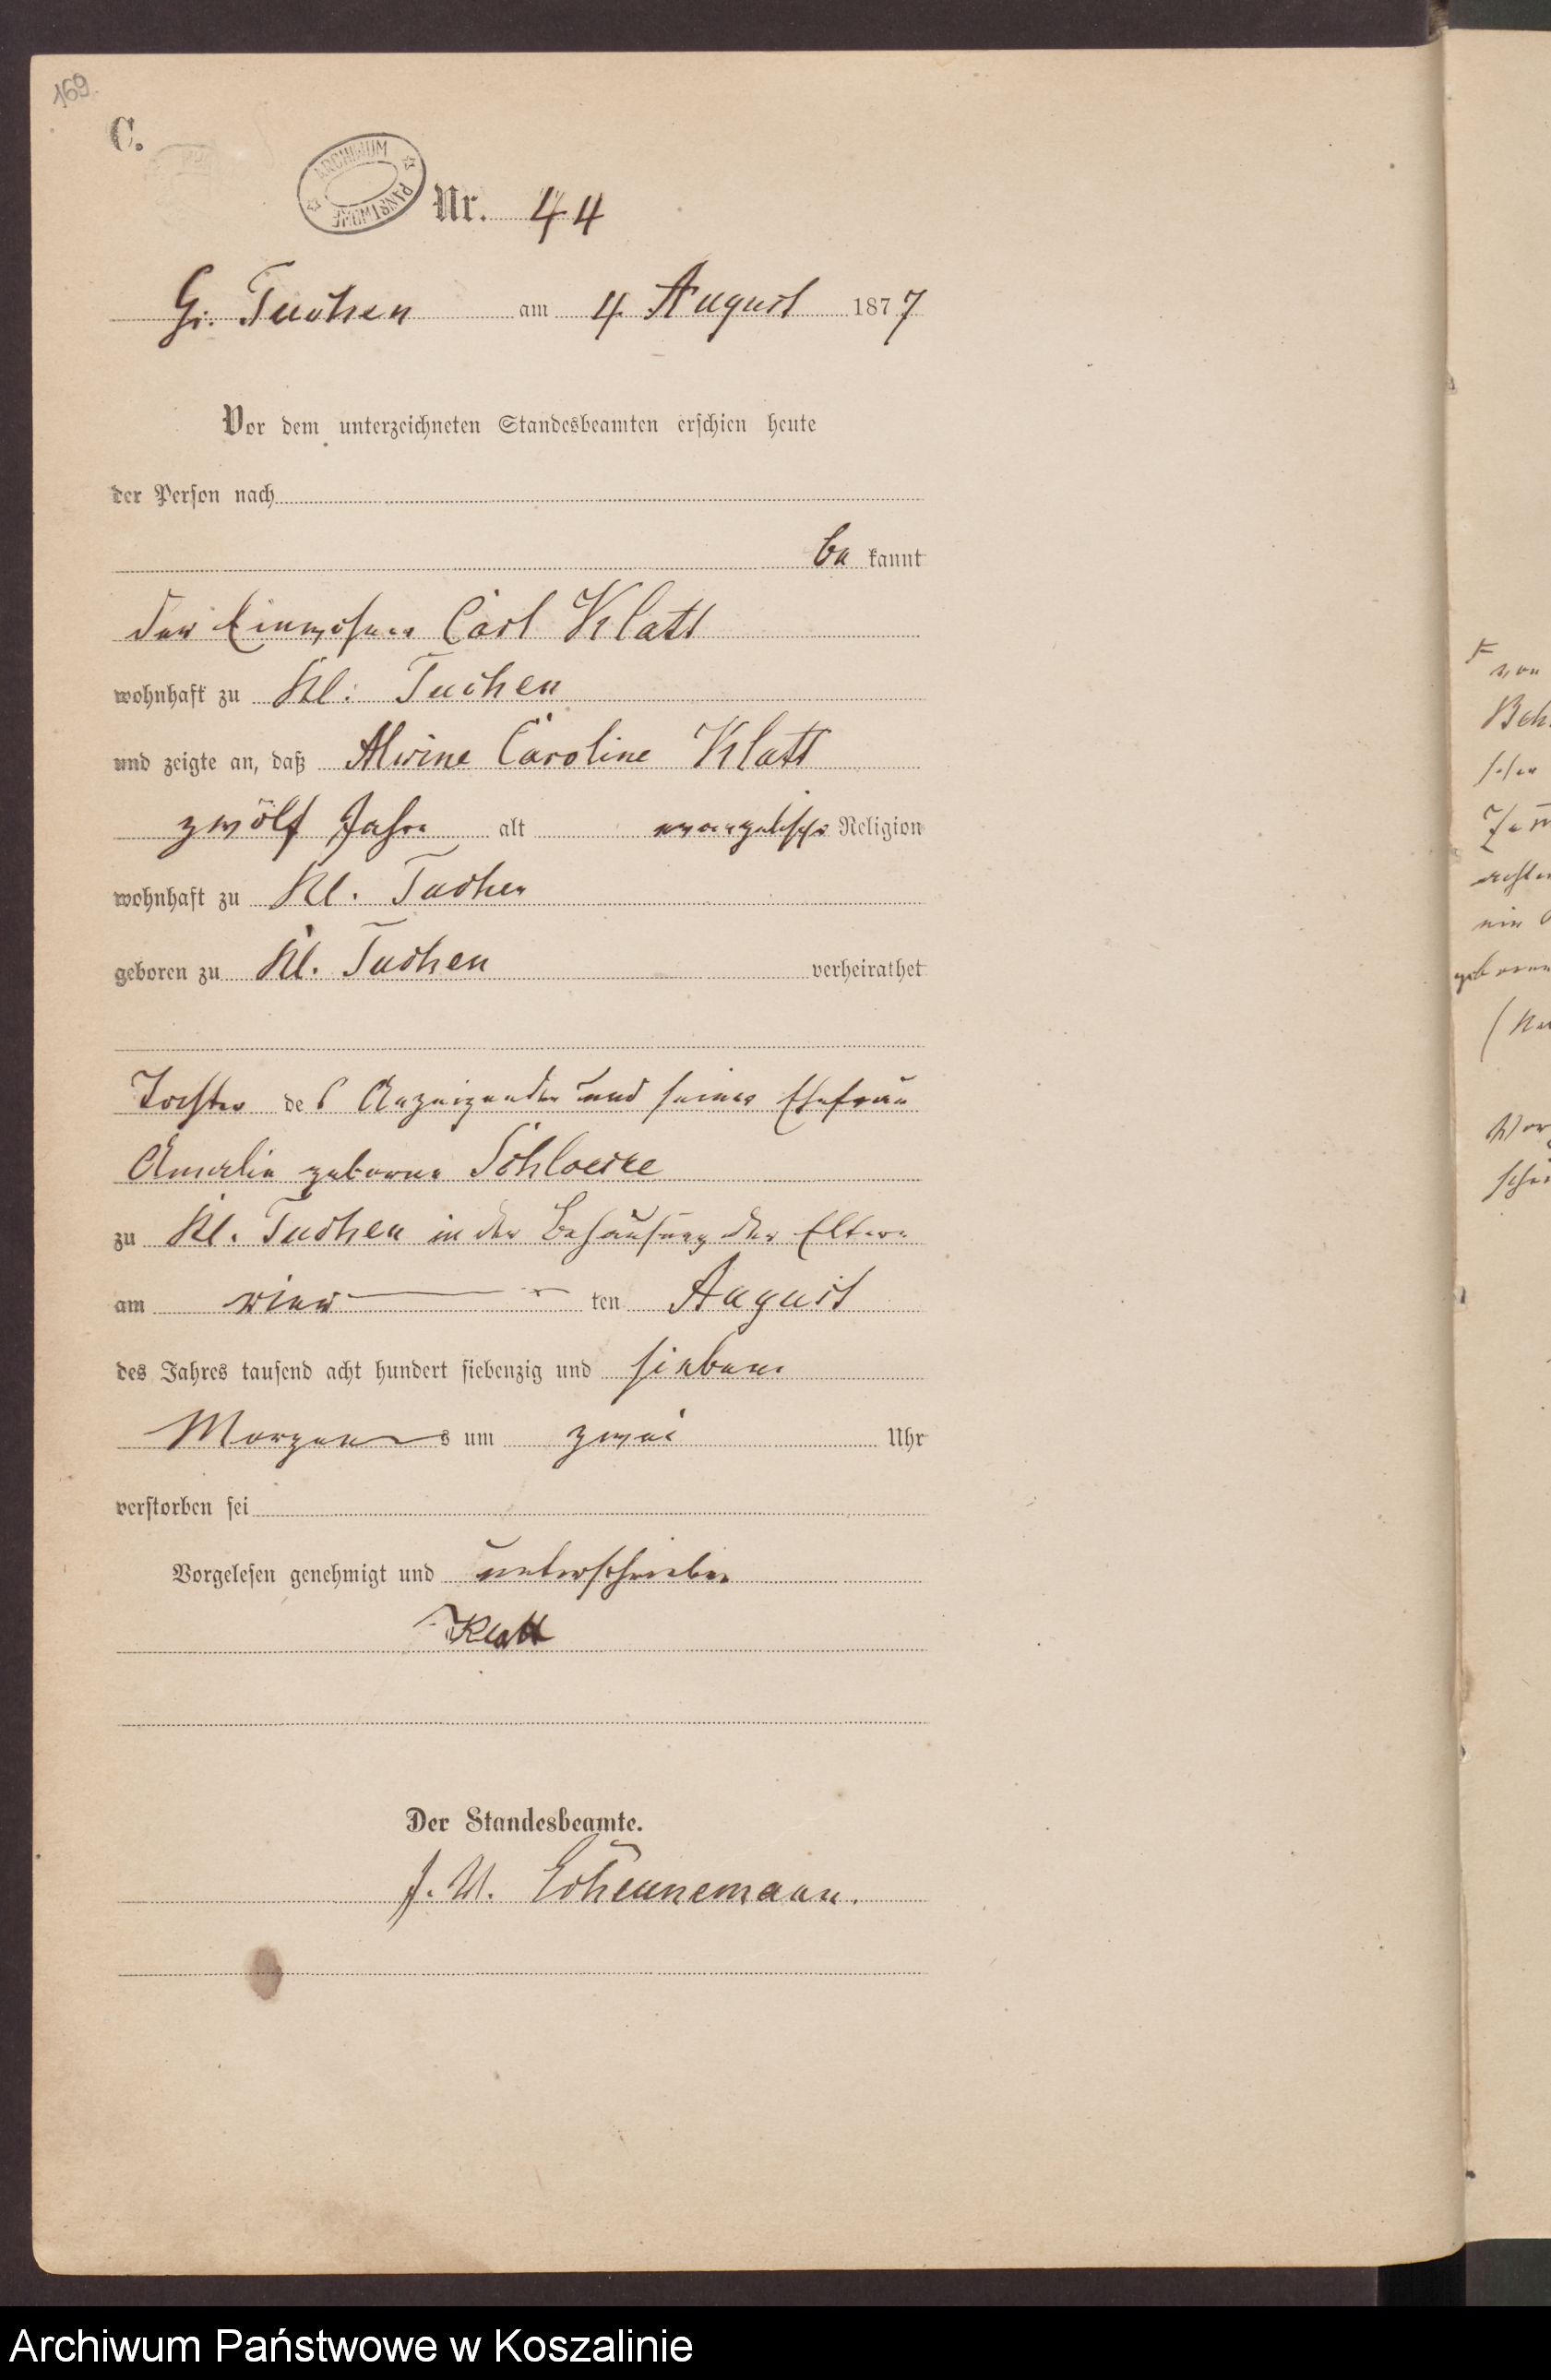 169.
C.
ARCHIWUM PAŃSTWOWE
Nr. 44
Gr. Tuchen am 4 August 1877
Vor dem unterzeichneten Standesbeamten erschien heute
der Person nach
be kannt
der Einwohner Carl Klatt
wohnhaft zu Kl: Tuchen
und zeigte an, daß Alwine Caroline Klatt
zwölf Jahre alt evangelischer Religion
wohnhaft zu Kl. Tuchen
geboren zu Kl. Tuchen verheirathet
Tochter des Anzeigenden und seiner Ehefrau
Amalie geborne
zu Kl. Tuchen in der Behausung der Eltern
am vier ten August
des Jahres tausend acht hundert siebenzig und sieben
Morgens um zwei Uhr
verstorben sei
Vorgelesen genehmigt und unterschrieben
Klatt
Der Standesbeamte.
Scheunemann.
von
Archiwum Państwowe w Koszalinie